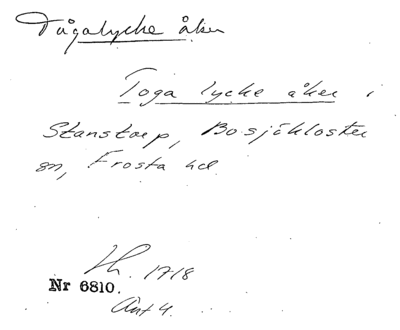 Tågalycke åker
Toga lycke åker i
Stanstorp, Bosjökloster
sn, Frosta hd.
Lh. 1718
Nr 6810.
Ant 4.